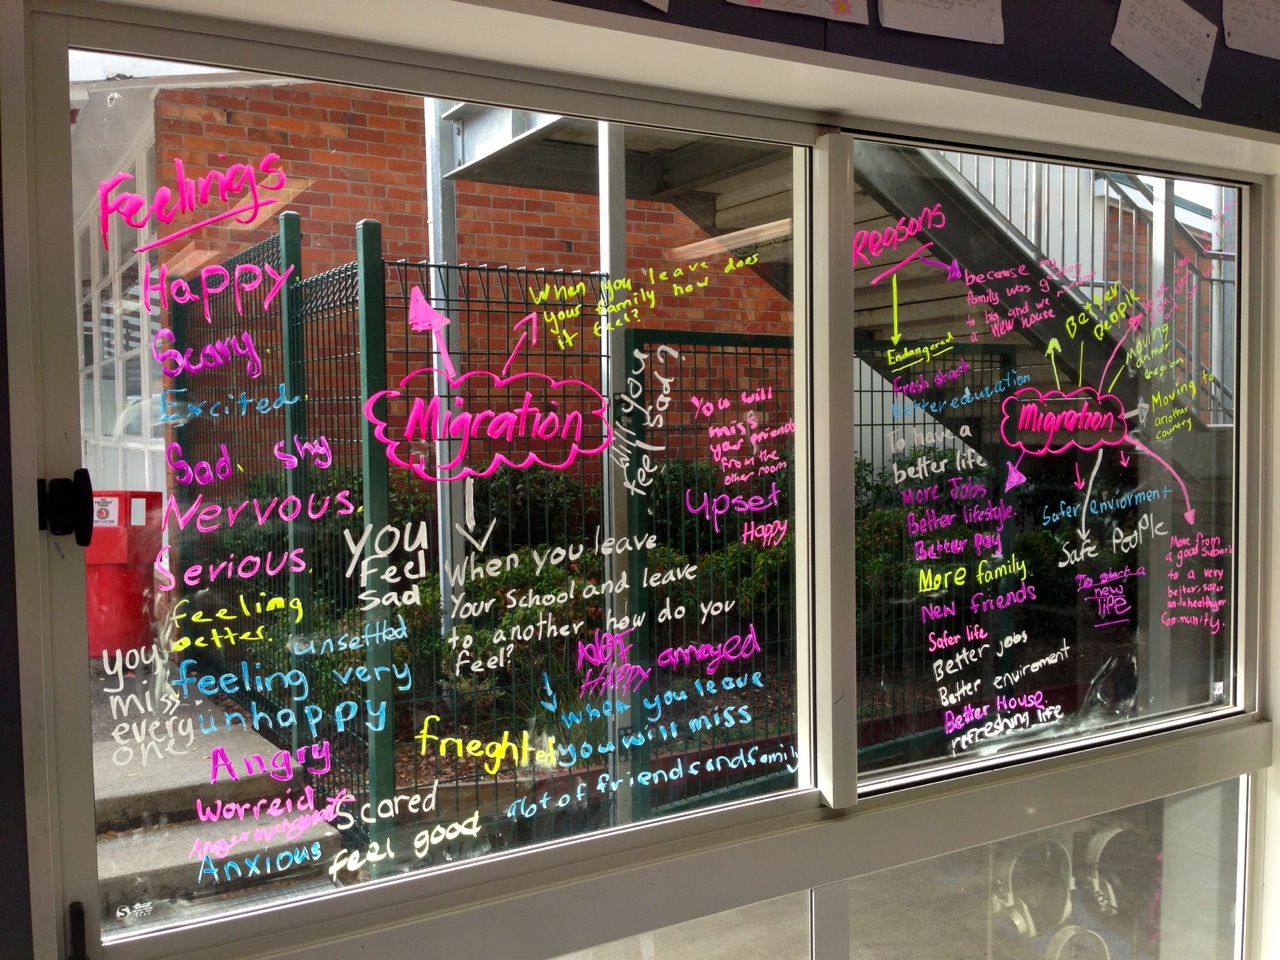 Feelings
Happy
Scary.
Excited.
Sad. shy
Nervous.
Serious.
feeling
better.
unsettled
feeling very
unhappy
you
miss
every
one
Angry
Worreid
Anxious
Scared
feel good
Migration
When you leave does
your family how
it feel?
you
feel
sad
When you leave
Your School and leave
to another how do you
feel?
will you
feel sad?
You will
miss
your friends
from the
other room
upset
Happy
NOT
Happy
annoyed
frieghted
when you leave
you will miss
a lot of friends and family
Reasons
because my
family was
to big and we
a new house
Endangered
Fresh start
Better education
To have a
better life
More Jobs
Better lifestyle
Better pay
More family
New friends
Safer life
Better jobs
Better enviroment
Better House
refreshing life
Migration
Better
people
Moving
Moving to
another
country
Safer enviorment
Safe People
To start a
new
life
Move from
a good Suburb
to a very
better, safer
community.